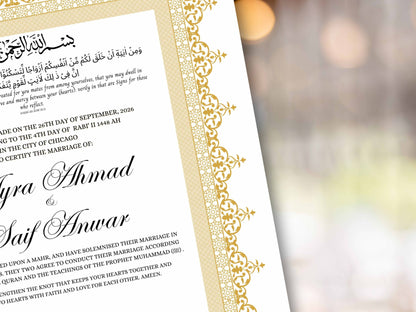 بسم الله الرحمن
وَمِنْ آيَاتِهِ أَنْ خَلَقَ لَكُم مِّنْ أَنفُسِكُمْ أَزْوَاجًا لِّتَسْكُنُوا
إِنَّ فِي ذَٰلِكَ لَآيَاتٍ لِّقَوْمٍ
created for you mates from among yourselves, that you may dwell in
ve and mercy between your (hearts). verily in that are Signs for those
who reflect.
ADE ON THE 26TH DAY OF SEPTEMBER, 2026
NG TO THE 4TH DAY OF RABI' II 1446 AH
IN THE CITY OF CHICAGO
O CERTIFY THE MARRIAGE OF:
yra Ahmad
&
Saif Anwar
ED UPON A MAHR, AND HAVE SOLEMNISED THEIR MARRIAGE IN
S. THEY TWO AGREE TO CONDUCT THEIR MARRIAGE ACCORDING
QURAN AND THE TEACHINGS OF THE PROPHET MUHAMMAD (ﷺ).
ENGTHEN THE KNOT THAT KEEPS YOUR HEARTS TOGETHER AND
O HEARTS WITH FAITH AND LOVE FOR EACH OTHER. AMEEN.